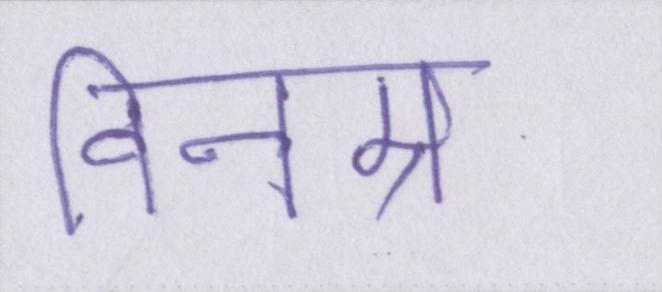 विनम्र